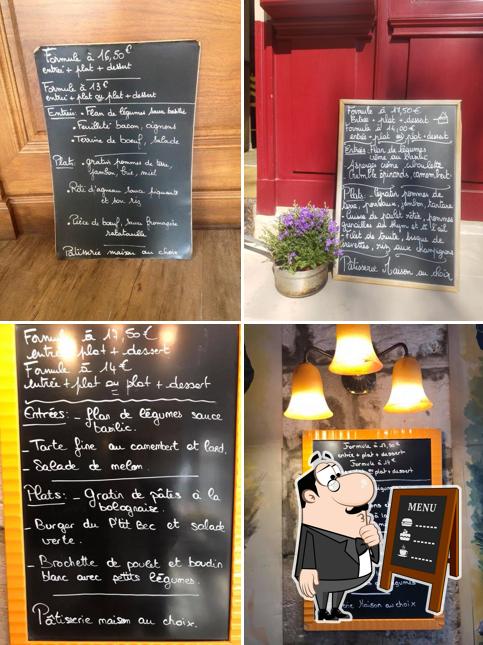 Formule à 16,50€
entrée + plat + dessert
Formule à 13€
entrée + plat ou plat + dessert
Entrée: • Flan de légumes sauce basilic
• Feuilleté bacon, oignons
• Terrine de bœuf, salade
Plat: • gratin pommes de terre,
jambon, brie, miel
• Rôti d'agneau sauce piquante
et son riz
• Pièce de bœuf, sauce fromagère
ratatouille
Pâtisserie maison au choix
Formule à 17,50€
Entrée + plat + dessert
Formule à 14,00€
entrée + plat ou plat + dessert
Entrées: Flan de légumes
crème au basilic
Asperges crème ciboulette
Crumble épinards, camembert
Plats: Gratin pommes de
terre, poireaux, jambon, tartare
• Cuisse de poulet rôtie, pommes
grenailles au thym et à l'ail
• Filet de truite, bisque de
crevettes, riz aux champignons
Pâtisserie Maison au choix
Formule à 17,50€
entrée + plat + dessert
Formule à 14€
entrée + plat ou plat + dessert
Entrées: - Flan de légumes sauce
basilic.
- Tarte fine au camembert et lard.
- Salade de melon.
Plats: - Gratin de pâtes à la
bolognaise.
- Burger du P'tit Bec et salade
verte.
- Brochette de poulet et boudin
blanc avec petits légumes.
Pâtisserie maison au choix.
Formule à 17,50€
entrée + plat + dessert
Formule à 14€
plat + dessert
légumes
Maison au choix
MENU